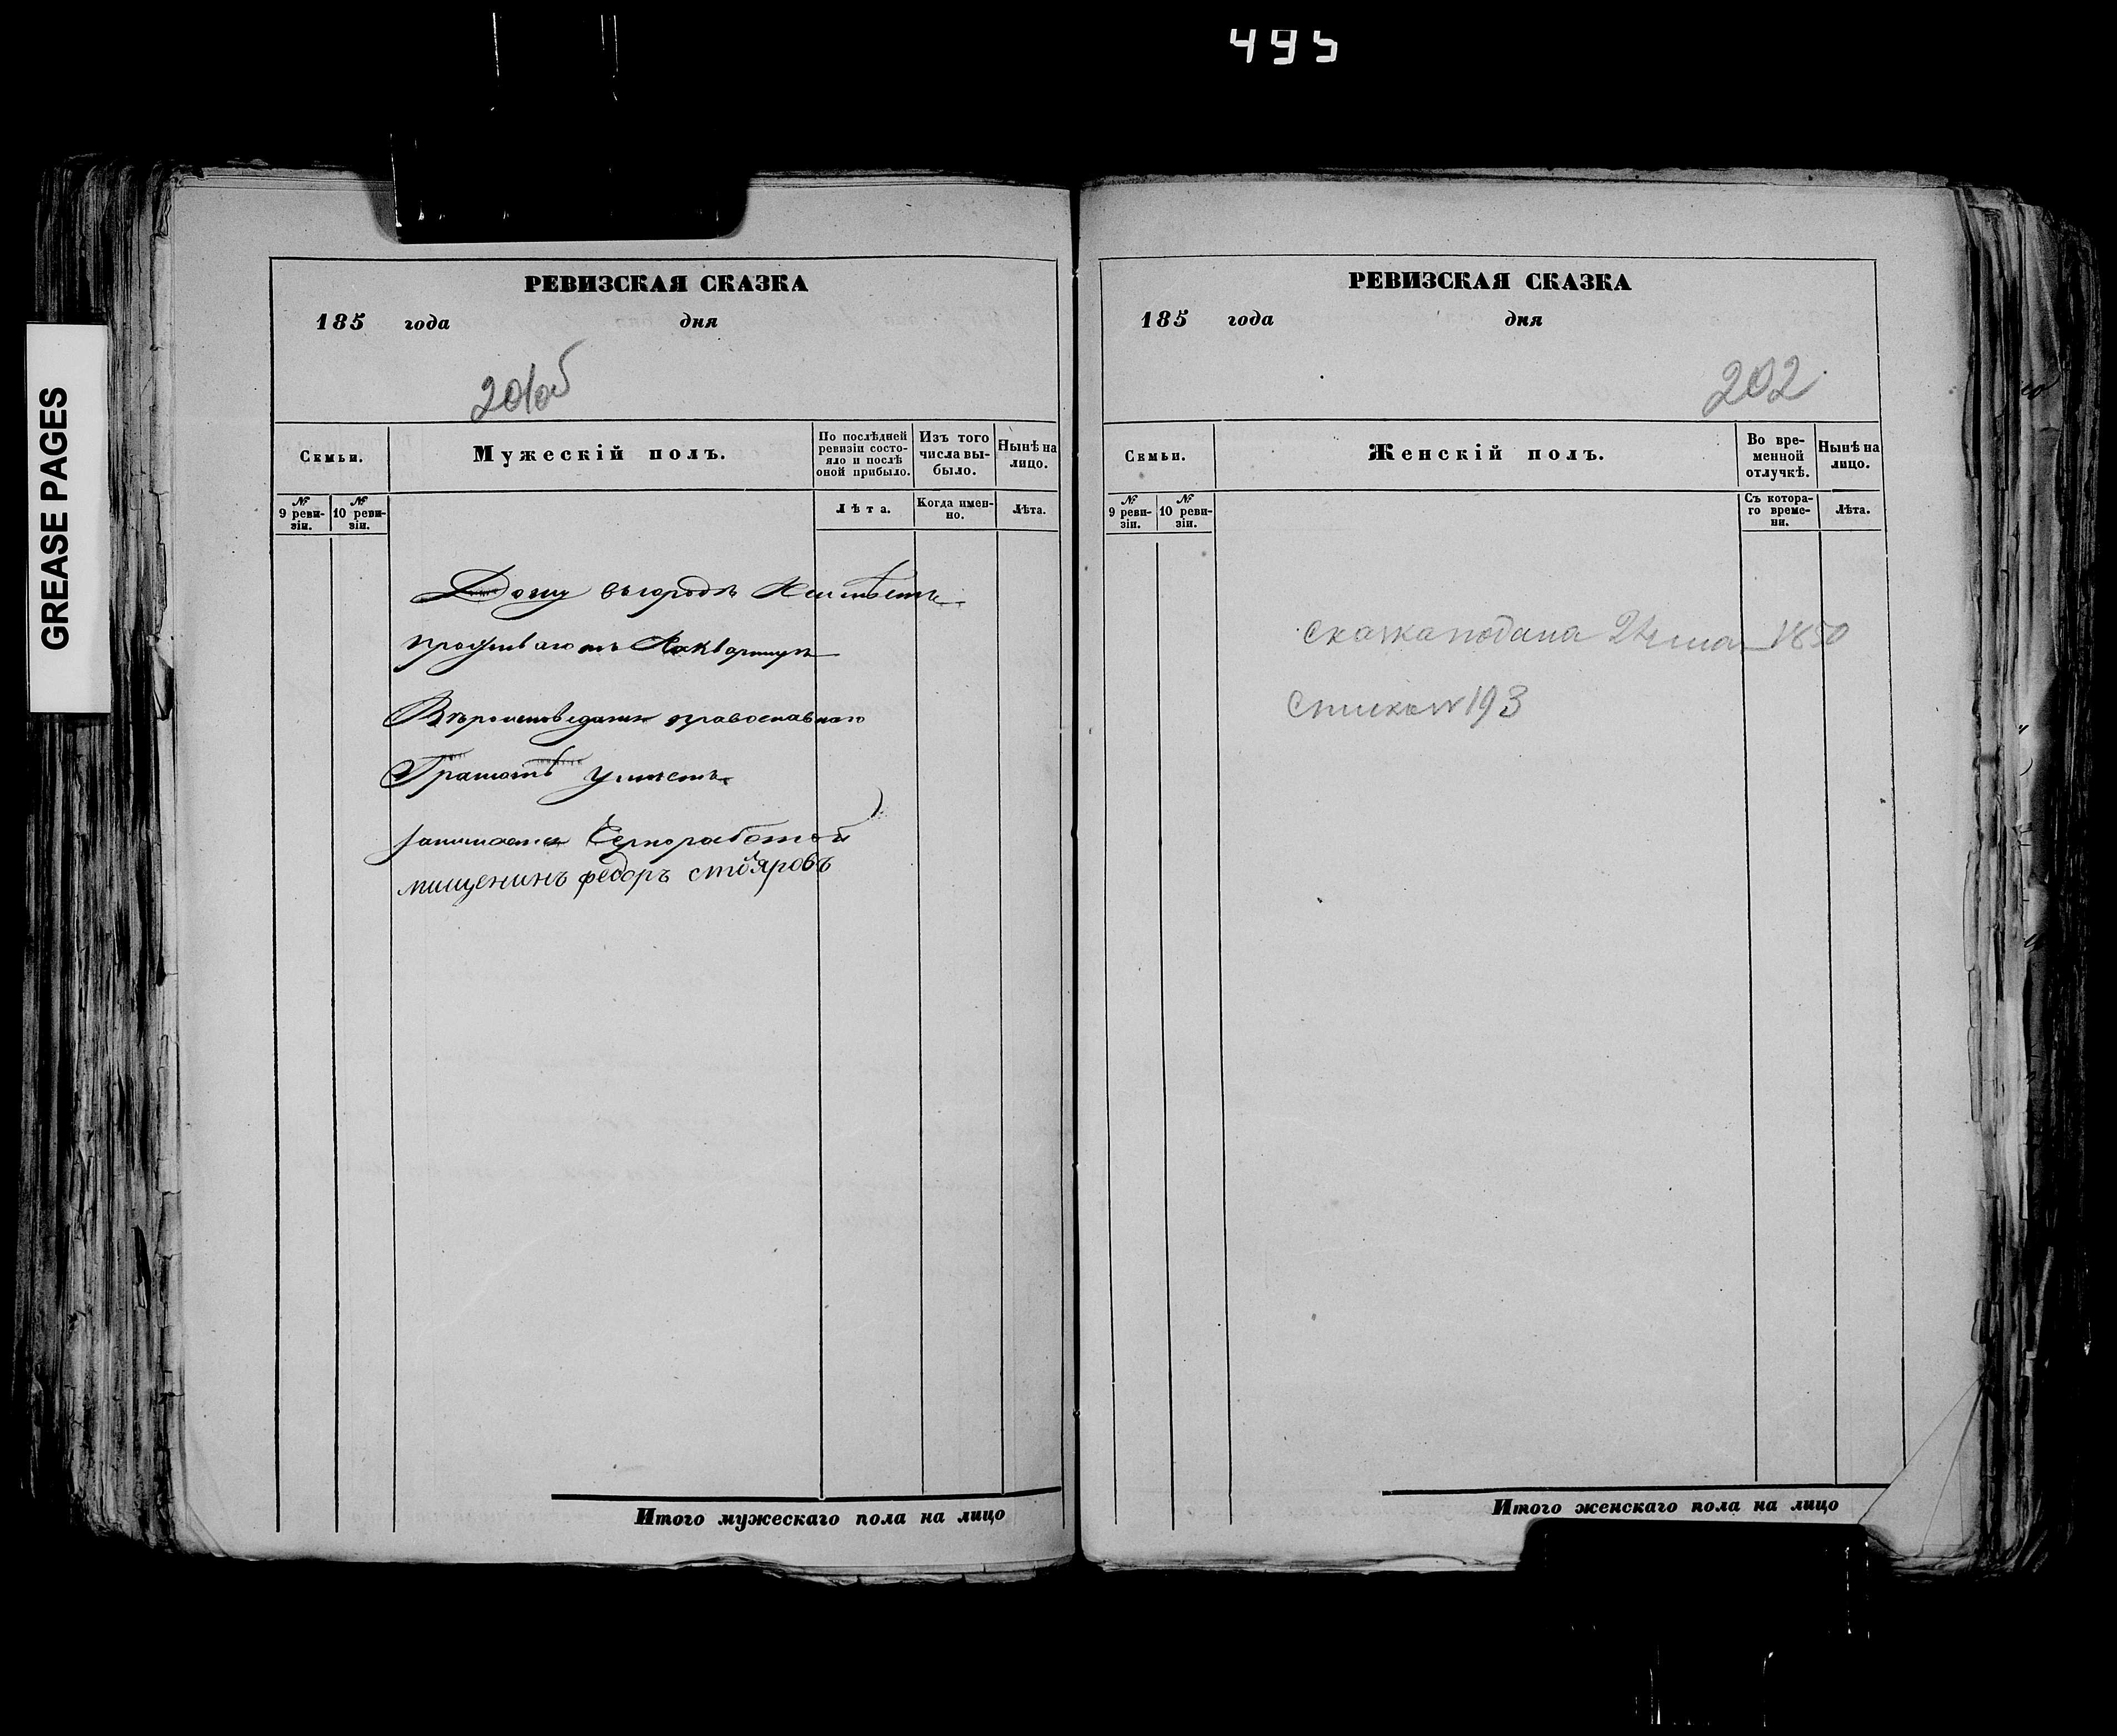 495
GREASE PAGES
РЕВИЗСКАЯ СКАЗКА
185 года дня
201об
Семьи.
Мужескій полъ.
По послѣдней ревизіи состояло и послѣ оной прибыло.
Изъ того числа выбыло.
Нынѣ на лицо.
№ 9 ревизіи.
№ 10 ревизіи.
Лѣта.
Когда именно.
Лѣта.
Дому въ городѣ Неимѣетъ
проживаютъ Наквартире
Вѣроисповеданія православнаго
Грамотѣ умеетъ
занимаетя Черноработой
мищенинъ федоръ столяровъ
Итого мужескаго пола на лицо
РЕВИЗСКАЯ СКАЗКА
185 года дня
202
Семьи.
Женскій полъ.
Во временной отлучкѣ.
Нынѣ на лицо.
№ 9 ревизіи.
№ 10 ревизіи.
Съ котораго времени.
Лѣта.
сказка подана 1850
193
Итого женскаго пола на лицо